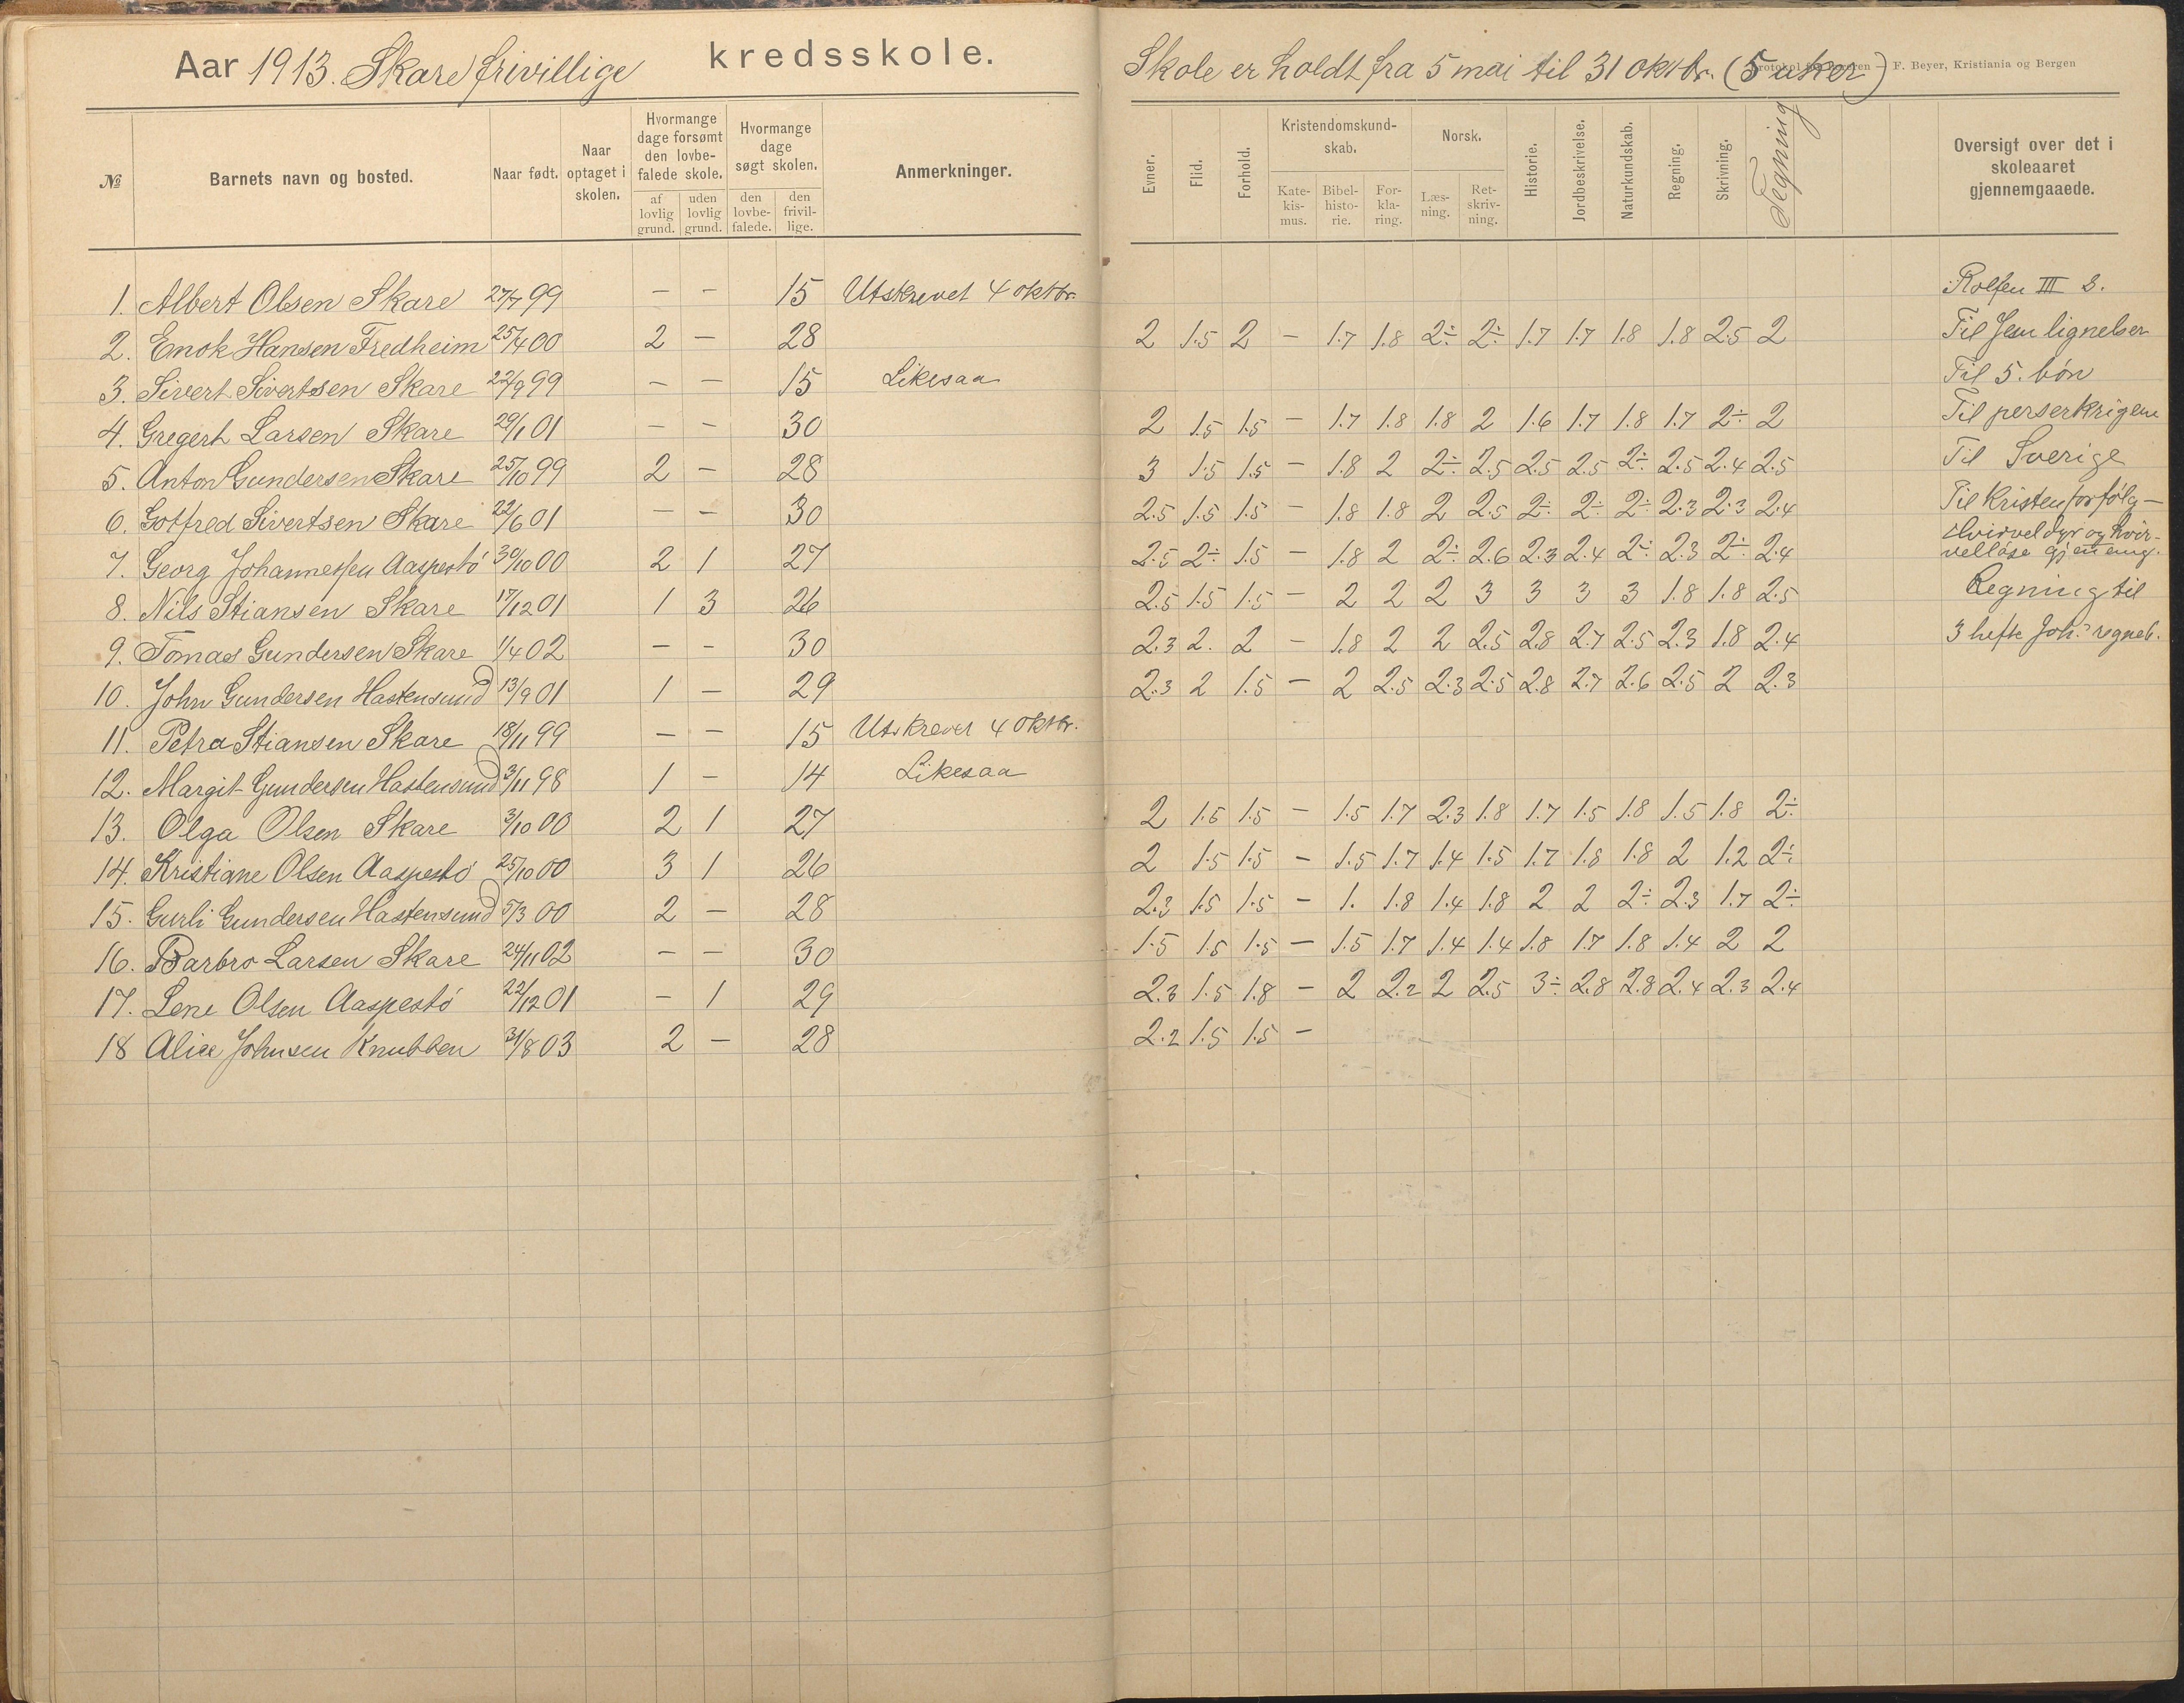 Aar 1913. Skare frivillige kredsskole.
№ Barnets navn og bosted. Naar født. Naar optaget i skolen. Hvormange dage forsømt den lovbefalede skole. af lovlig grund. uden lovlig grund. Hvormange dage søgt skolen. den lovbefalede. den frivillige. Anmerkninger.
1. Albert Olsen Skare 27/7 99 — - 15 Utskrevet 4 oktbr.
2. Enok Hansen Fredheim 25/4 00 2 — 28
3. Sivert Sivertsen Skare 22/9 99 — — 15 Likesaa
4. Gregert Larsen Skare 29/1 01 — — 30
5. Anton Gundersen Skare 25/10 99 2 — 28
6. Gotfred Sivertsen Skare 22/6 01 — — 30
7. Georg Johannessen Aaspestö 30/10 00 2 1 27
8. Nils Stiansen Skare 17/12 01 1 3 26
9. Tomas Gundersen Skare 1/4 02 — - 30
10. John Gundersen Hastensund 13/9 01 1 — 29
11. Petra Stiansen Skare 18/11 99 — - 15 Utskrevet 4 oktbr.
12. Margit Gundersen Hastensund 3/11 98 1 — 14 Likesaa
13. Olga Olsen Skare 3/10 00 2 1 27
14. Kristiane Olsen Aaspestö 25/10 00 3 1 26
15. Gurli Gundersen Hastensund 5/3 00 2 — 28
16. Barbro Larsen Skare 24/11 02 — — 30
17. Lene Olsen Aaspestö 22/12 01 — 1 29
18 Alice Johnsen Knubben 31/8 03 2 — 28
Skole er holdt fra 5 mai til 31 oktbr. (5 uker)
F. Beyer, Kristiania og Bergen
Evner. Flid. Forhold. Kristendomskundskab. Katekismus. Bibelhistorie. Forklaring. Norsk. Læsning. Retskrivning. Historie. Jordbeskrivelse. Naturkundskab. Regning. Skrivning. Tegning Oversigt over det i skoleaaret gjennemgaaede.
Rolfsen III 3.
2 1.5 2 — 1.7 1.8 2÷ 2÷ 1.7 1.7 1.8 1.8 2.5 2 Til Jesu lignelser
Til 5. bön
2 1.5 1.5 — 1.7 1.8 1.8 2 1.6 1.7 1.8 1.7 2÷ 2 Til perserkrigene
3 1.5 1.5 — 1.8 2 2÷ 2.5 2.5 2.5 2÷ 2.5 2.4 2.5 Til Sverige
2.5 1.5 1.5 — 1.8 1.8 2 2.5 2÷ 2÷ 2÷ 2.3 2.3 2.4 Til Kristenforfölg—
2.5 2÷ 1.5 — 1.8 2 2÷ 2.6 2.3 2.4 2÷ 2.3 2÷ 2.4 Hvirveldyr og hvirvellöse gjennemg.
2.5 1.5 1.5 — 2 2 2 3 3 3 3 1.8 1.8 2.5 Regning til
2.3 2. 2 — 1.8 2 2 2.5 2.8 2.7 2.5 2.3 1.8 2.4 3 hefte Joh.s regneb.
2.3 2 1.5 — 2 2.5 2.3 2.5 2.8 2.7 2.6 2.5 2 2.3
2 1.5 1.5 — 1.5 1.7 2.3 1.8 1.7 1.5 1.8 1.5 1.8 2÷
2 1.5 1.5 — 1.5 1.7 1.4 1.5 1.7 1.8 1.8 2 1.2 2÷
2.3 1.5 1.5 — 1. 1.8 1.4 1.8 2 2 2÷ 2.3 1.7 2÷
1.5 1.5 1.5 — 1.5 1.7 1.4 1.4 1.8 1.7 1.8 1.4 2 2
2.3 1.5 1.8 — 2 2.2 2 2.5 3÷ 2.8 2.8 2.4 2.3 2.4
2.2 1.5 1.5 —